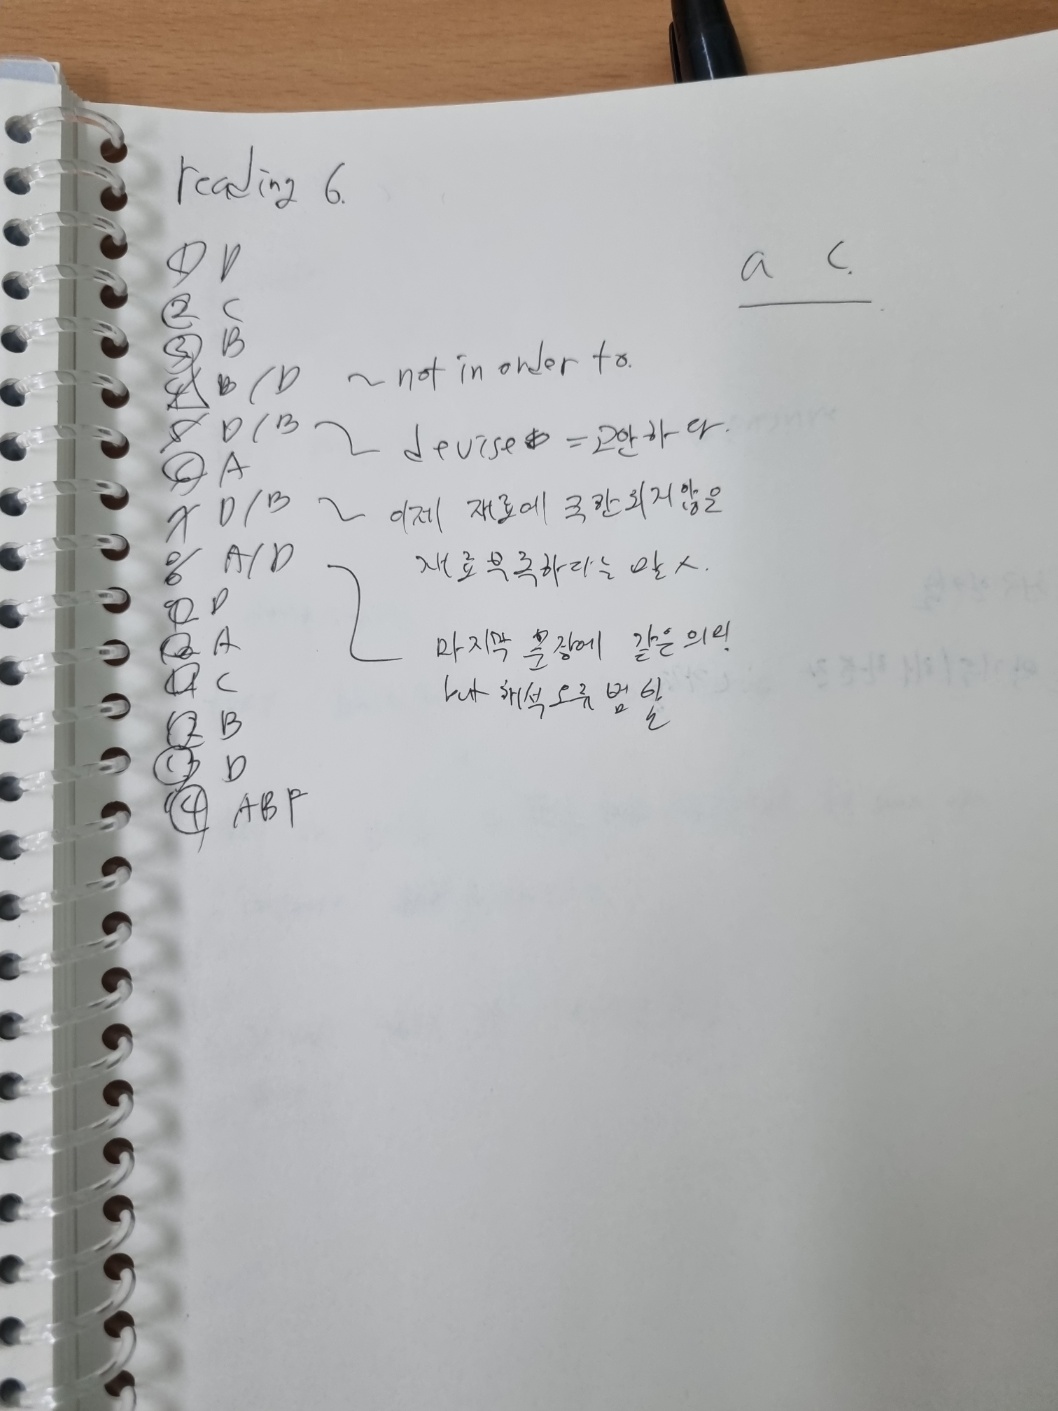 reading 6.
a c.
① D
② C
③ B
4 B/D ~ not in order to.
5 D/B ~ devise = 고안하다.
⑥ A
7 D/B ~ 이제 재료에 국한되지않은
재료부족하다는 말 X.
8 A/D
⑨ D
마지막 문장에 같은 의미
⑩ A
but 해석오류 범함
⑪ C
⑫ B
⑬ D
⑭ ABF